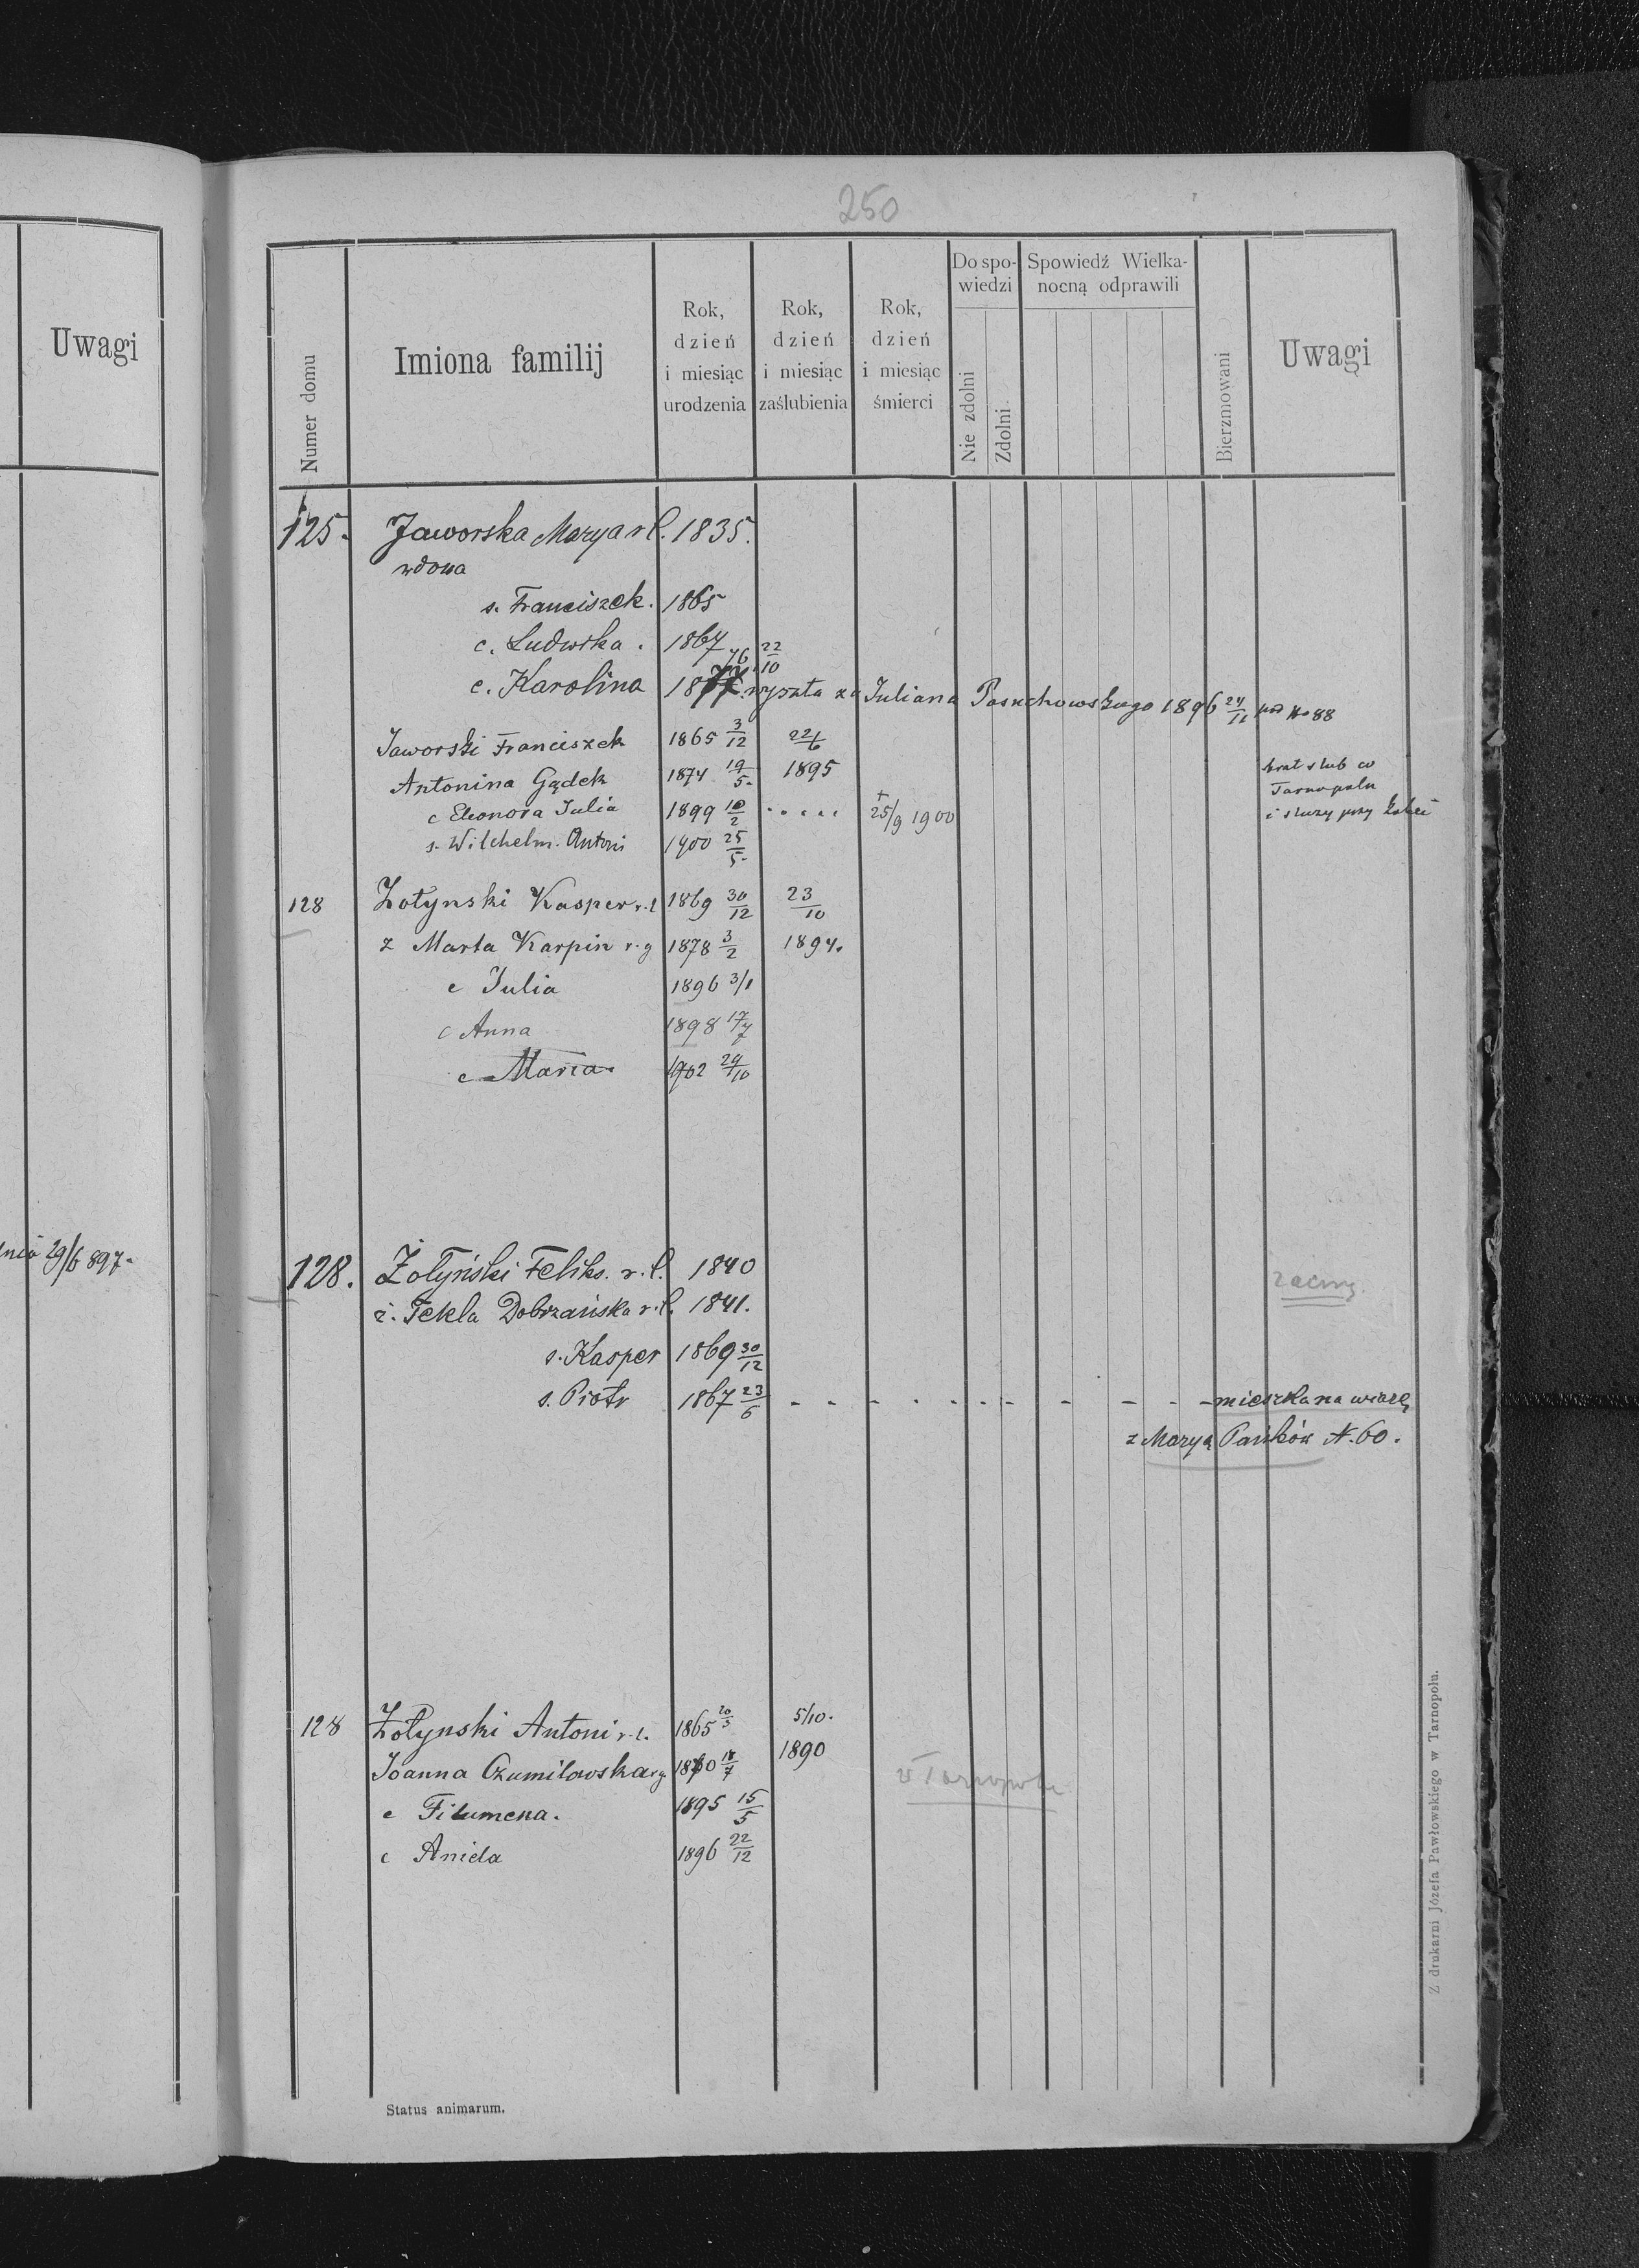 250
Uwagi
Numer domu
Imiona familij
Rok, dzień i miesiąc urodzenia
Rok, dzień i miesiąc zaślubienia
Rok, dzień i miesiąc śmierci
Do spowiedzi
Nie zdolni
Zdolni
Spowiedź Wielkanocną odprawili
Bierzmowani
Uwagi
125. Jaworska Marya r l. 1835.
wdowa
s. Franciszek. 1865
c. Ludwika. 1867
c. Karolina 18 76 22/10 wyszła za Juliana 1896 24/11 pod No 88
Jaworski Franciszek 1865 3/12 22/6
Antonina Gądek 1874 19/5. 1895
brał slub w
Tarnopolu
i sluzy przy
c Eleonora Julia 1899 10/2 ..... + 25/9 1900
s. Wilchelm. Antoni 1900 25/5.
128 Żotynski Kasper r. l 1869 30/12 23/10
z Marta Karpin r. g 1878 3/2 1894.
c Julia 1896 3/1
c Anna 1898 17/7
c Maria 1902 29/10
29/6 897.
128. Żołyński Feliks. r. l. 1840
ż. Tekla Dobrzańska r. l. 1841.
s. Kasper 1869 30/12
s. Piotr 1867 23/6 - - - - - - - - - - - mieszka na wiarę
z Maryą Pańków N. 60.
128 Żołynski Antoni r. l. 1865 20/3 5/10.
Joanna Czumilowska r g 1870 18/7 1890
w Tarnopolu
c Filumena. 1895 15/5
c Aniela 1896 22/12
Status animarum.
Z drukarni Józefa Pawłowskiego w Tarnopolu.